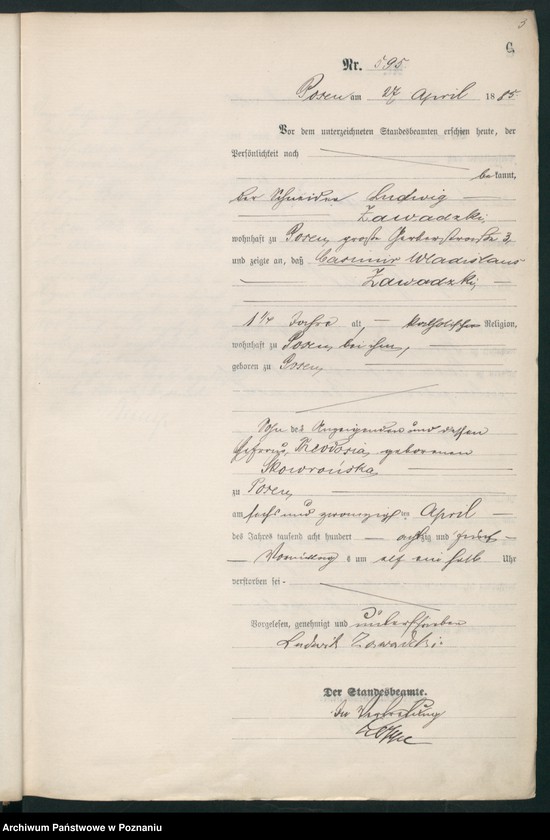 3
C
Nr. 595
Posen am 27 April 1885
Vor dem unterzeichneten Standesbeamten erschien heute, der
Persönlichkeit nach
bekannt,
der Schneider Ludwig
Zawadzki,
wohnhaft zu Posen, große Gerberstraße 3,
und zeigte an, daß Casimir Wladislaus
Zawadzki,
1 1/4 Jahre alt, katholischer Religion,
wohnhaft zu Posen, bei ihm,
geboren zu Posen,
Sohn des Anzeigenden und dessen
Ehefrau, Theodosia, geborenen
Skowrońska,
zu Posen,
am sechs und zwanzigsten April
des Jahres tausend acht hundert achtzig und fünf
Vormittags um elf ein halb Uhr
verstorben sei
Vorgelesen, genehmigt und unterschrieben
Ludwik Zawadzki.
Der Standesbeamte.
In Vertretung
Archiwum Państwowe w Poznaniu